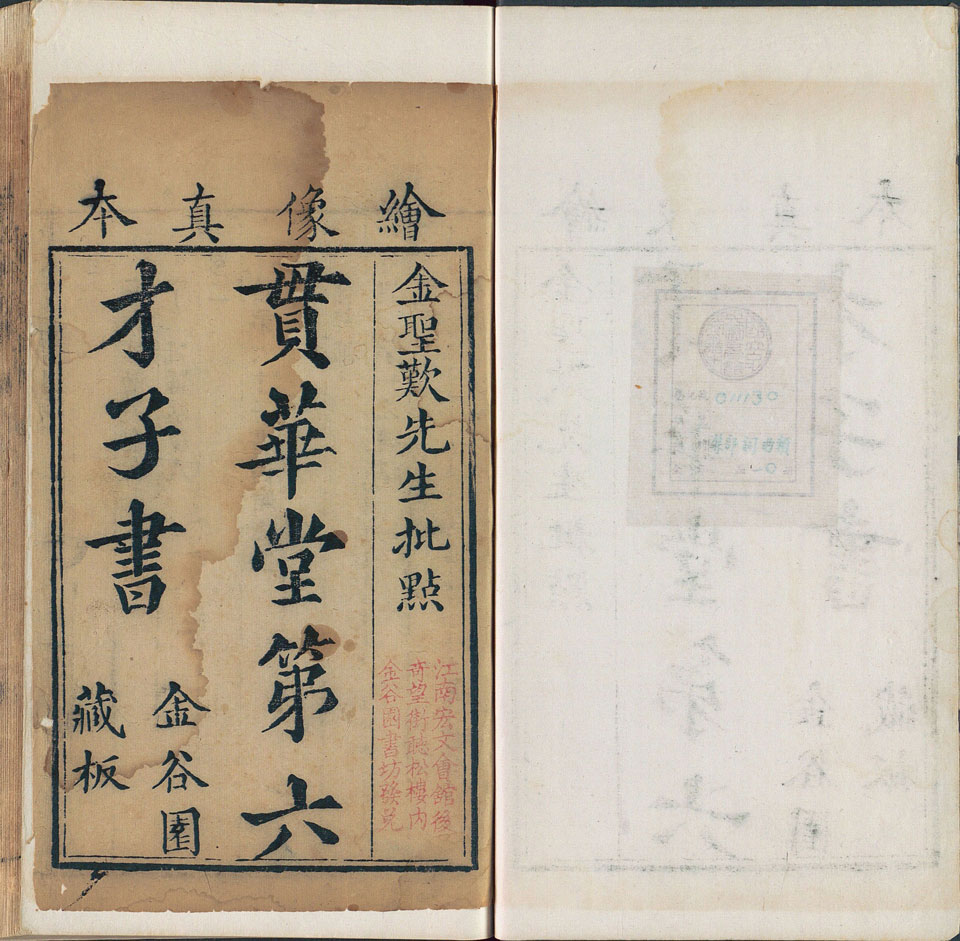 繪像真本
金聖歎先生批點
江南宏文會館後
奇望街聽松樓內
金谷園書坊發兌
貫華堂第六
才子書
金谷園
藏板
011130